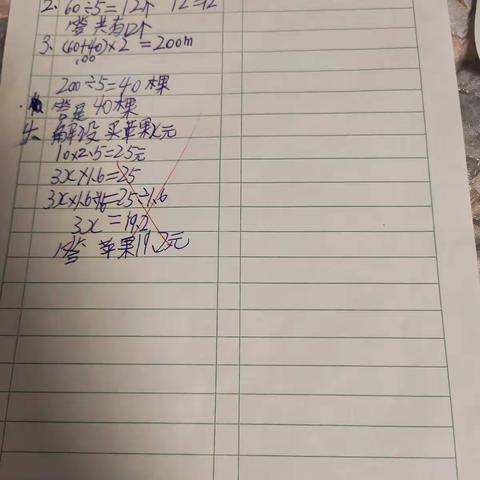 2. 60÷5=12个 12=12
答 共有12个
3. (60+40)×2=200m
100
200÷5=40棵
答是 40棵
解设 买苹果x元
10×2.5=25元
3x×1.6=25
3x×1.6÷1.6=25÷1.6
3x=19.2
答 苹果19.2元